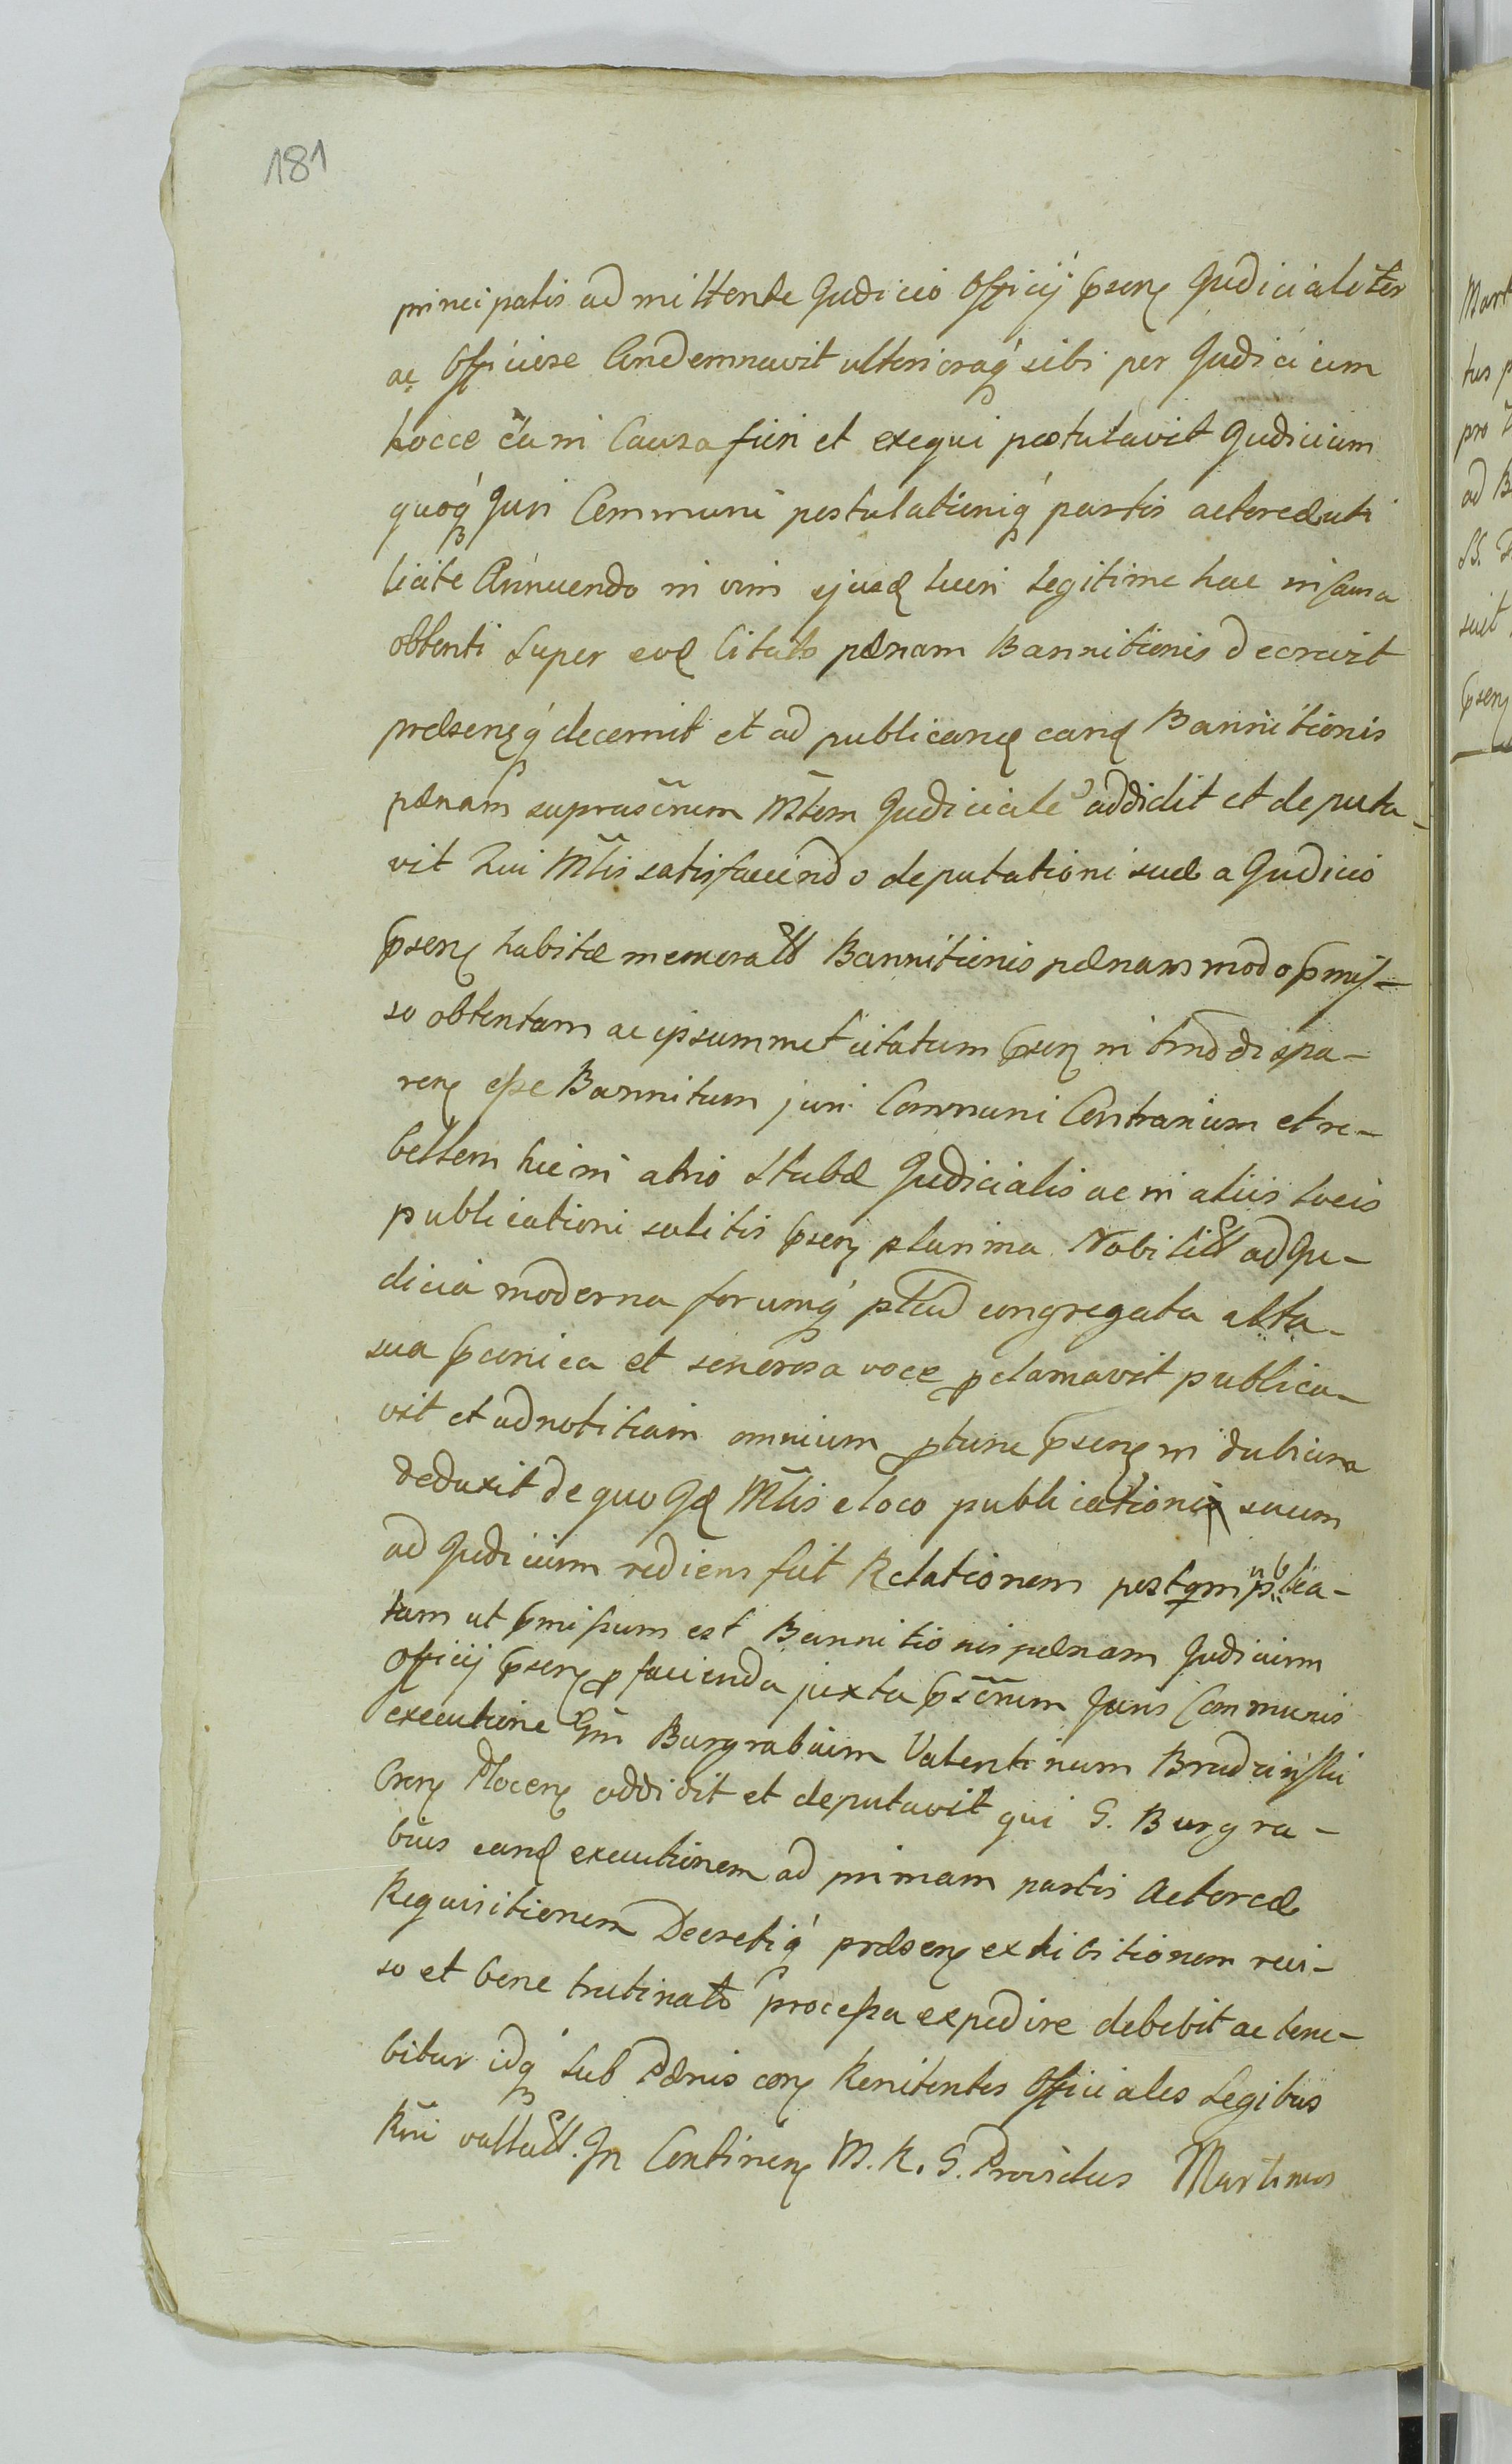 181
principalis admittende Judicio Officij pseng Judicialiter
ac Officiose Condemnavit ulterioraq́ sibi per Judicium
hocce ea in Causa fieri et exequi postulavit Judicium
quoq́ Juri Communi postulationiq́ partis actoreæ uti
licite Annuendo in vim ejusd lucri legitime hac in causa
obtenti super eod Citato pænam Bannitionis decrevit
præsengq́ decernit et ad publicand eand Bannitionis
pænam suprascrium Mtem Judiciale addidit et deputa-
vit Qui Mtis satisfaciendo deputationi suæ a Judicio
pseng habitæ memorat Bannitionis pænam modo pmis-
so obtentam ac ipsummet citatum pseng in tmo dispa-
reng esse Bannitum juri Communi Contrarium et re-
bellem hic in atrio Stubæ Judicialis ac in aliis locis
publicationi solitis pseng plurima Nobilit ad Ju-
dicia moderna forumq́ congregata alta
sua pconica et sonorosa voce pclamavit publica-
vit et ad notitiam omnium ptunc pseng in dubiam
deduxit de quo Jd Mtis e loco publicationis suum
ad Judicium rediens fcit Relationem postqm publica-
tam ut pmissum est Bannitionis pænam Judicium
Officij pseng p facienda juxta pscrium Juris Communis
executione Gm Burgrabium Valentinum Brudzinski
Creng Ploceng addidit et deputavit qui G. Burgra-
bius eand executionem ad primam partis Actoreæ
Requisitionem Decretiq́ præseng exhibitionem revi-
so et bene trutinato processu expedire debebit ac tene-
bitur idq́ sub Pænis cong Renitentes Officiales Legibus
Rni vallat. In Contineng M. R. G. Providus Martinus